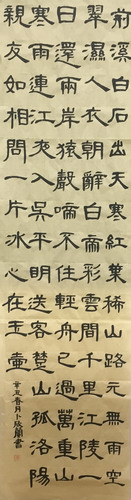 荊溪白石出天寒紅葉稀山路元無雨空
翠濕人衣朝辭白帝彩雲間千里江陵一
日還兩岸猿聲啼不住輕舟已過萬重山
寒雨連江夜入吳平明送客楚山孤洛陽
親友如相問一片冰心在玉壺
辛丑春月卜書